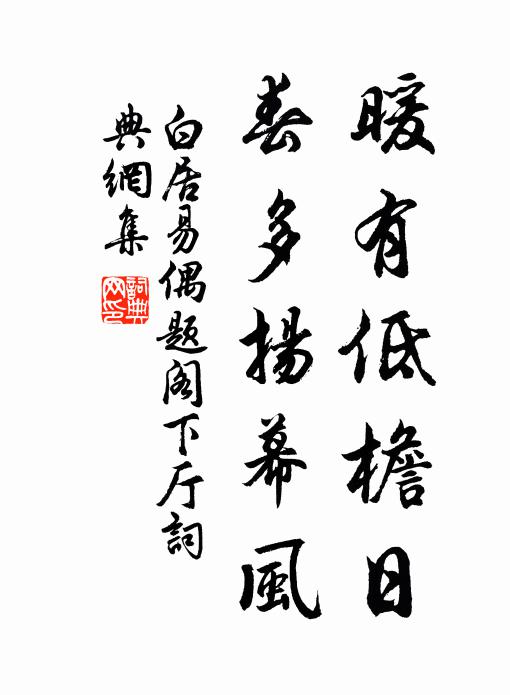 暖有低檐日
春多揚幕風
白居易偶題阁下厅詞
典網集
詞典网印